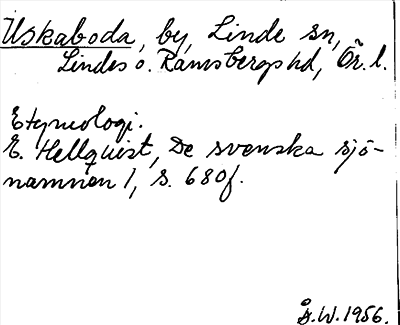 Uskaboda, by, Linde sn,
Lindes o. Ramsbergs hd, Ör. l.
Etymologi.
E. Hellquist, De svenska sjö-
namnen 1, s. 680f.
Å.W. 1956.